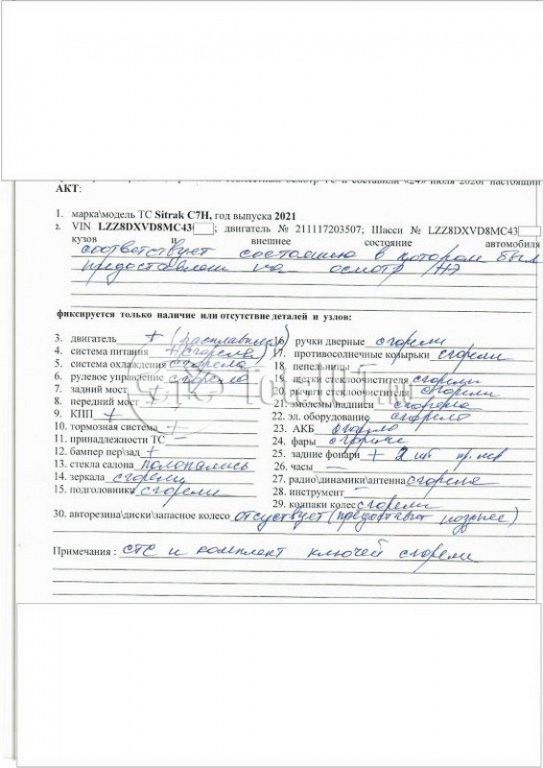 совместный осмотр ТС и составили «24» июля 2026г настоящий
АКТ:
1. марка\модель ТС Sitrak C7H, год выпуска 2021
2. VIN LZZ8DXVD8MC43; двигатель № 211117203507; Шасси № LZZ8DXVD8MC43
кузов и внешнее состояние автомобиля
соответствует состоянию в котором был
предоставлен на осмотр
фиксируется только наличие или отсутствие деталей и узлов:
3. двигатель + (расплавился)
4. система питания + (сгорела)
5. система охлаждения сгорела
6. рулевое управление сгорело
7. задний мост +
8. передний мост +
9. КПП +
10. тормозная система +
11. принадлежности ТС —
12. бампер пер\зад +
13. стекла салона полопались
14. зеркала сгорели
15. подголовники сгорели
16. ручки дверные сгорели
17. противосолнечные козырьки сгорели
18. пепельницы —
19. щетки стеклоочистителя сгорели
20. рычаги стеклоочистителя сгорели
21. эмблемы\надписи сгорели
22. эл. оборудование сгорело
23. АКБ сгорело
24. фары сгорели
25. задние фонари + 2 шт пр. лев
26. часы —
27. радио\динамики\антенна сгорела
28. инструмент —
29. колпаки колес сгорели
30. авторезина\диски\запасное колесо отсутствует (предоставят позднее)
Примечания : СТС и комплект ключей сгорели